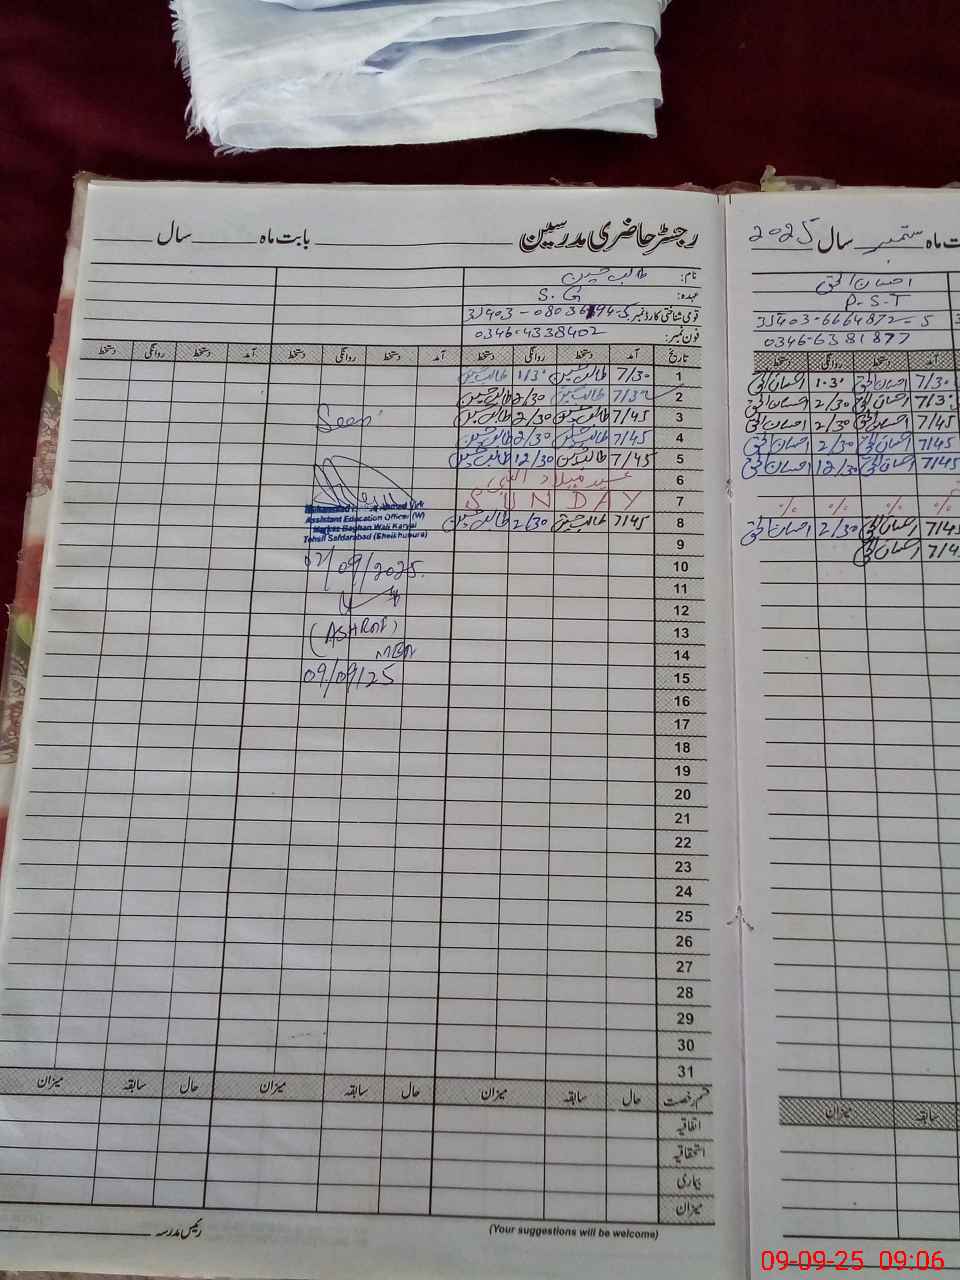 رجسٹر حاضری مدرسین بابت ماہ سال
نام: طالب حسین
عہدہ: S.G
قومی شناختی کارڈ نمبر
فون نمبر: 0346-4338402
تاریخ آمد دستخط روانگی دستخط آمد دستخط روانگی دستخط آمد دستخط روانگی دستخط
1 7/30 طالب حسین 1/30 طالب حسین
2 7/30 طالب حسین 2/30 طالب حسین
3 7/45 طالب حسین 2/30 طالب حسین
4 7/45 طالب حسین 2/30 طالب حسین
5 7/45 طالب حسین 12/30 طالب حسین
6 عید میلاد النبی
7 SUNDAY
8 7/45 طالب حسین 2/30 طالب حسین
9
10
11
12
13
14
15
16
17
18
19
20
21
22
23
24
25
26
27
28
29
30
31
Seen
Muhammad Ahmed Virk
Assistant Education Officer (W)
Markaz Baghan Wali Karyal
Tehsil Safdarabad (Sheikhupura)
02/09/2025.
(ASHRAF)
MEA
09/09/25
قسم رخصت حال سابقہ میزان حال سابقہ میزان حال سابقہ میزان
اتفاقیہ
استحقاقیہ
بیماری
میزان
(Your suggestions will be welcome)
رئیس مدرسہ
ت ماہ ستمبر سال 2025
احسان الحق
P.S.T
35403-6664872-5
0346-6381877
آمد دستخط روانگی دستخط
7/30 احسان الحق 1.30 احسان الحق
7/3 احسان الحق 2/30 احسان الحق
7/45 احسان الحق 2/30 احسان الحق
7/45 احسان الحق 2/30 احسان الحق
7/45 احسان الحق 12/30 احسان الحق
7/45 احسان الحق 2/30 احسان الحق
7/4 احسان الحق
سابقہ میزان
09-09-25 09:06